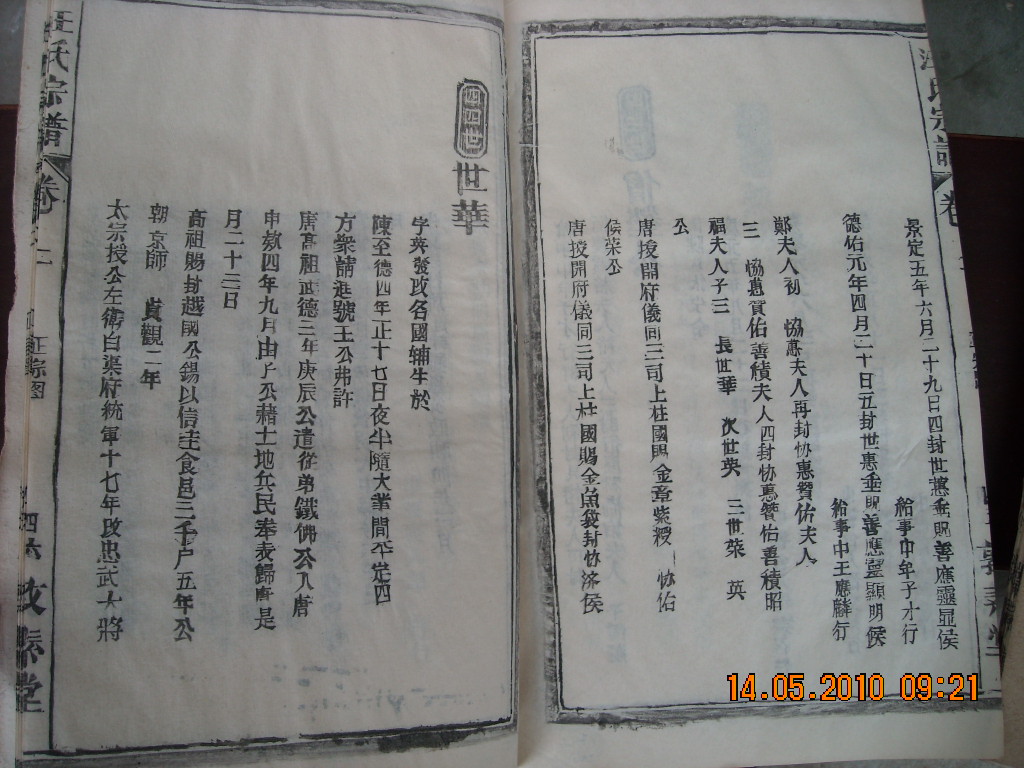 汪氏宗譜
卷
景定五年六月二十九日四封世惠垂貺善應靈显侯
給事中牟子才行
德佑元年四月二十日五封世惠垂貺善應靈顯明候
給事中王應麟行
鄭夫人初 協惠夫人再封协惠贊佑夫人
三 協惠贊佑善積夫人四封协惠贊佑善積昭
福夫人子三 長世華 次世英 三世荣 英
公
唐授開府儀同三司上柱國賜金章紫綬 协佑
侯荣公
唐授開府儀同三司上柱國賜金魚袋封协济侯
四四世
世華
字英發改名國辅生於
陳至德四年正十七日夜半隨大業間平定四
方衆請進號王公弗許
唐高祖武德三年庚辰公遣從弟鐵佛公入唐
申欵四年九月由子公藉土地兵民奉表歸唐是
月二十三日
高祖賜封越國公錫以信圭食邑三千户五年公
朝京師 貞觀二年
太宗授公左衛白渠府統軍十七年改忠武大將
汪氏宗譜
卷之二
正宗图
四六
敦㑞堂
14.05.2010 09:21